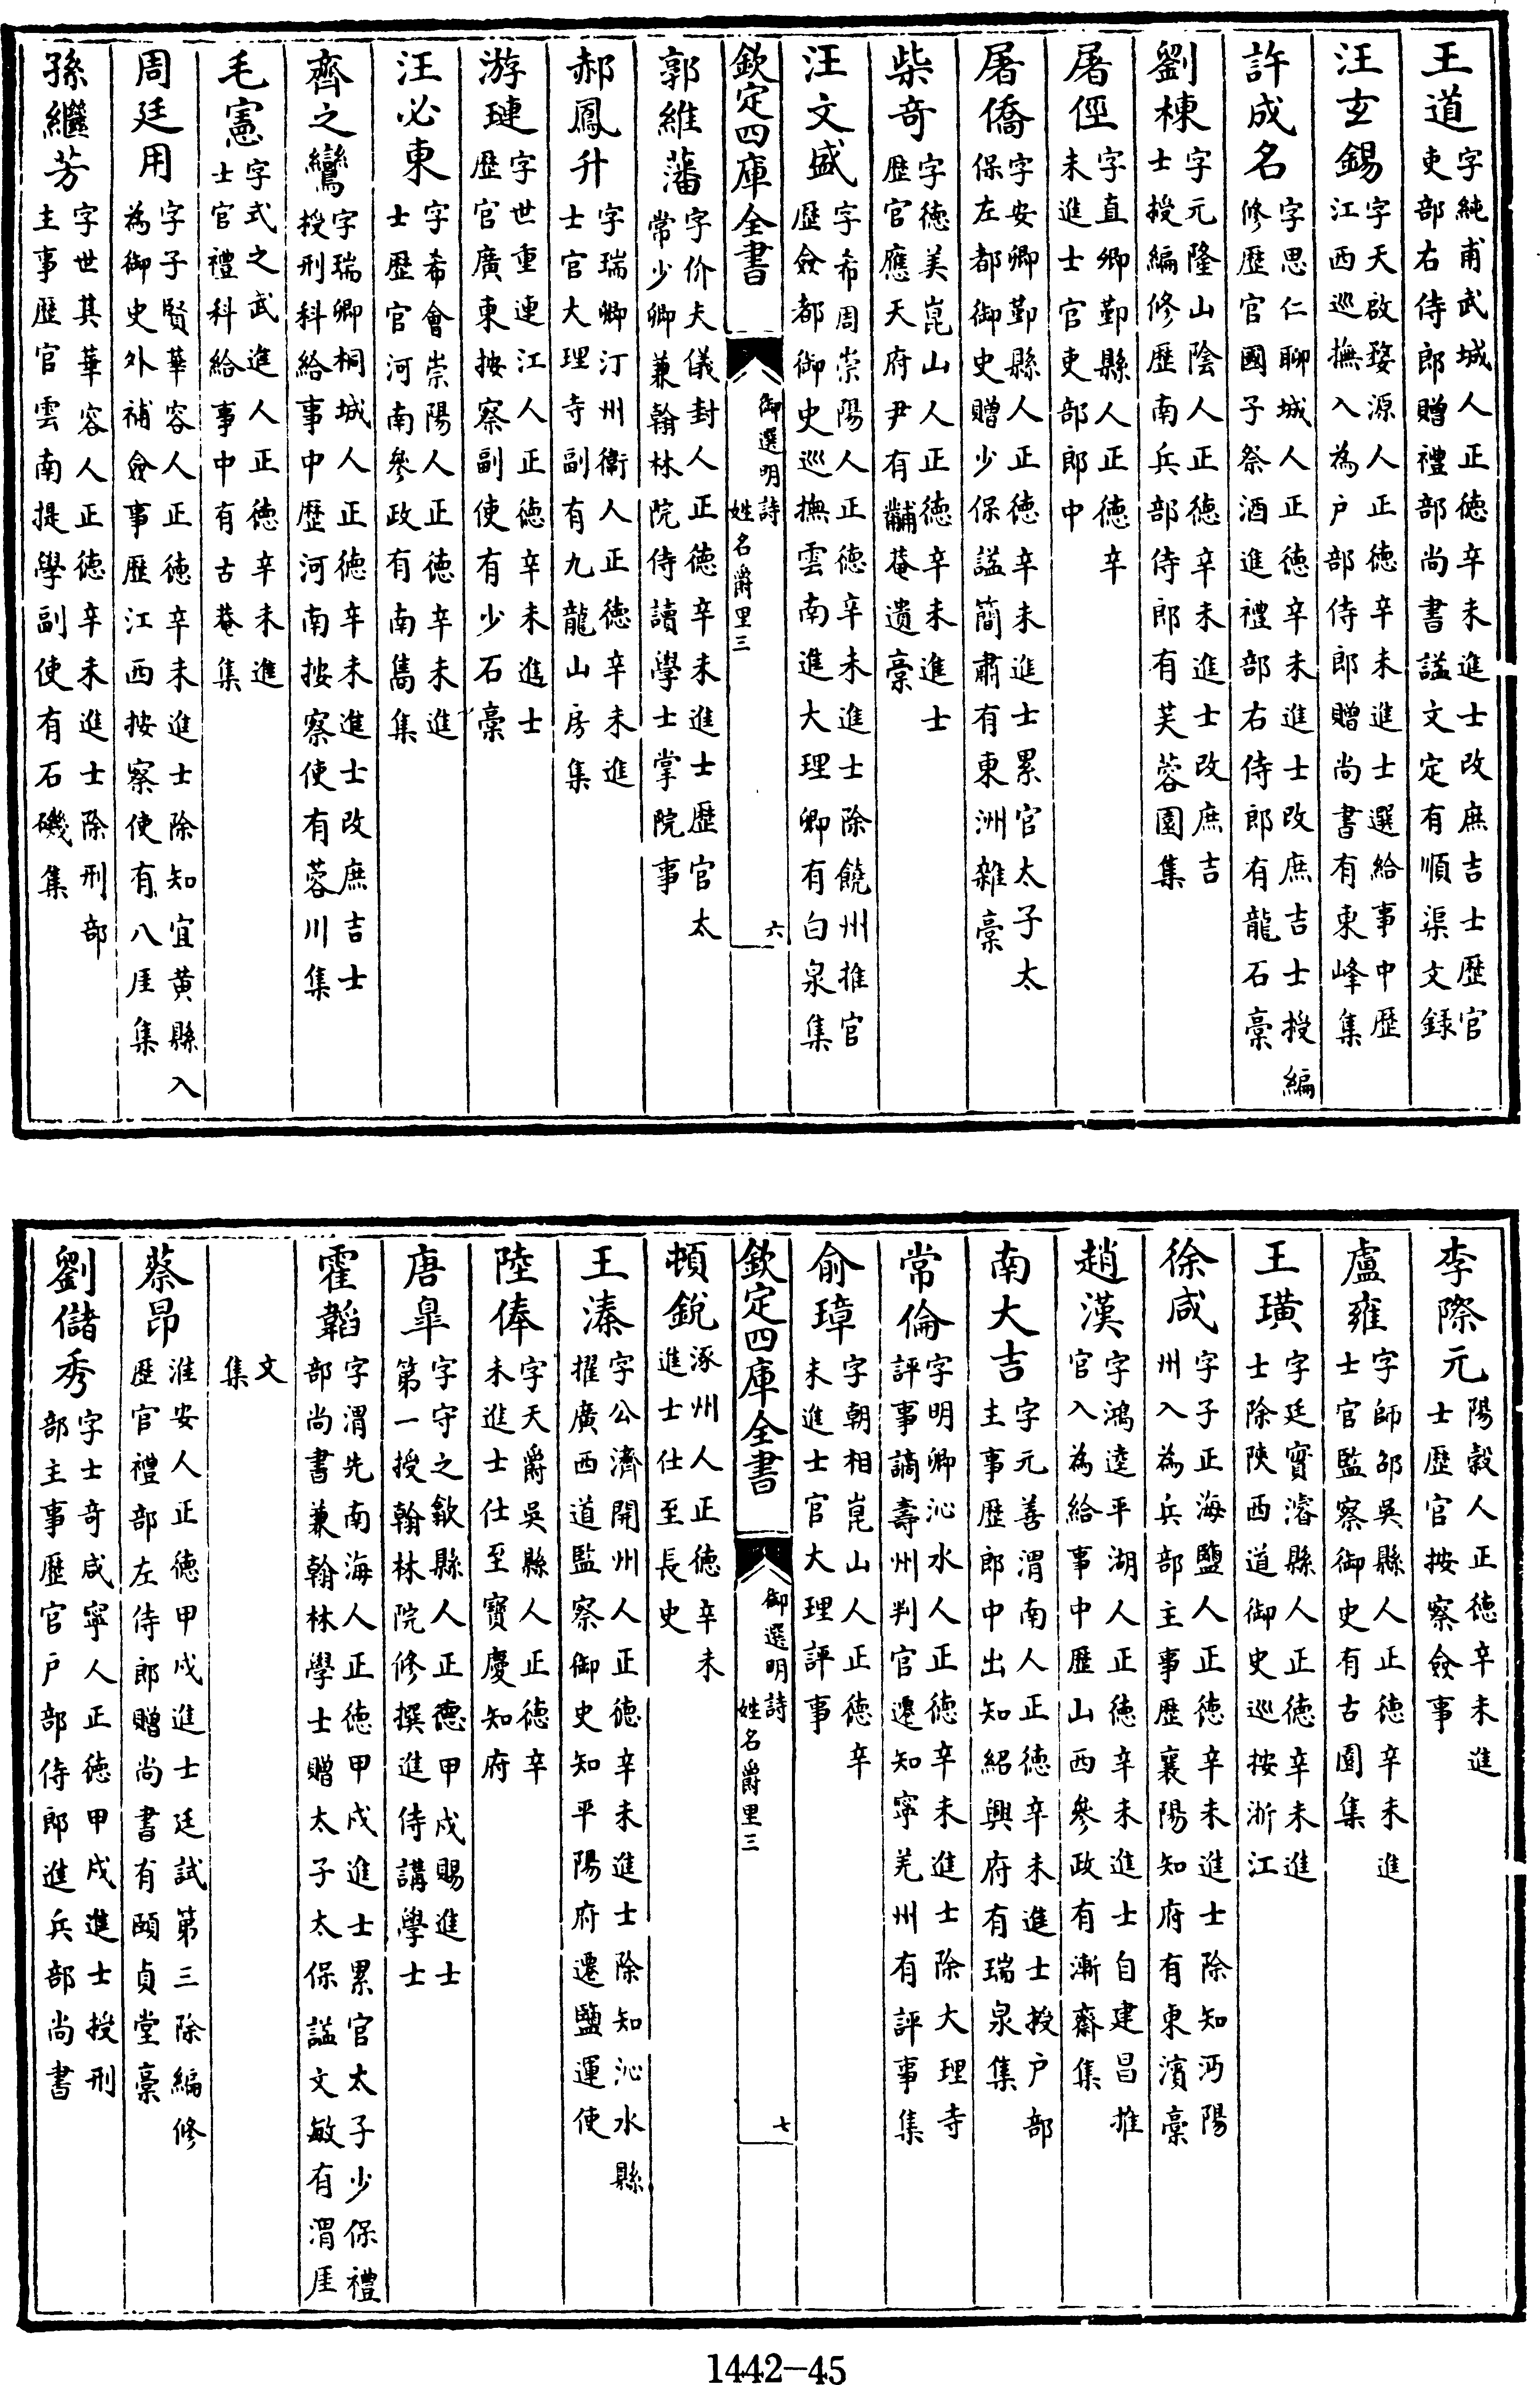 王道字純甫武城人正德辛未進士改庶吉士歷官吏部右侍郎贈禮部尚書諡文定有順渠文録
汪玄錫字天啟婺源人正德辛未進士選給事中歷江西巡撫入為戶部侍郎贈尚書有東峰集
許成名字思仁聊城人正德辛未進士改庶吉士授編修歷官國子祭酒進禮部右侍郎有龍石稾
劉棟字元隆山陰人正德辛未進士改庶吉士授編修歷南兵部侍郎有芙蓉園集
屠俓字直卿鄞縣人正德辛未進士官吏部郎中
屠僑字安卿鄞縣人正德辛未進士累官太子太保左都御史贈少保諡簡肅有東洲雜稾
柴竒字德美崑山人正德辛未進士歷官應天府尹有黼菴遺稾
汪文盛字希周崇陽人正德辛未進士除饒州推官歷僉都御史巡撫雲南進大理卿有白泉集
欽定四庫全書 御選明詩 姓名爵里三 六
郭維藩字价夫儀封人正德辛未進士歷官太常少卿兼翰林院侍讀學士掌院事
郝鳳升字瑞卿汀州衛人正德辛未進士官大理寺副有九龍山房集
游璉字世重連江人正德辛未進士歷官廣東按察副使有少石稾
汪必東字希會崇陽人正德辛未進士歷官河南參政有南雋集
齊之鸞字瑞卿桐城人正德辛未進士改庶吉士授刑科給事中歷河南按察使有蓉川集
毛憲字式之武進人正德辛未進士官禮科給事中有古菴集
周廷用字子賢華容人正德辛未進士除知宜黃縣入為御史外補僉事歷江西按察使有八厓集
孫繼芳字世其華容人正德辛未進士除刑部主事歷官雲南提學副使有石磯集
李際元陽榖人正德辛未進士歷官按察僉事
盧雍字師邵吳縣人正德辛未進士官監察御史有古園集
王璜字廷實濬縣人正德辛未進士除陝西道御史巡按浙江
徐咸字子正海鹽人正德辛未進士除知沔陽州入為兵部主事歷襄陽知府有東濱稾
趙漢字鴻逵平湖人正德辛未進士自建昌推官入為給事中歷山西參政有漸齋集
南大吉字元善渭南人正德辛未進士授戶部主事歷郎中出知紹興府有瑞泉集
常倫字明卿沁水人正德辛未進士除大理寺評事謫壽州判官遷知寧羌州有評事集
俞璋字朝相崑山人正德辛未進士官大理評事
欽定四庫全書 御選明詩 姓名爵里三 七
頓銳涿州人正德辛未進士仕至長史
王溱字公濟開州人正德辛未進士除知沁水縣擢廣西道監察御史知平陽府遷鹽運使
陸俸字天爵吳縣人正德辛未進士仕至寶慶知府
唐皐字守之歙縣人正德甲戌賜進士第一授翰林院修撰進侍講學士
霍韜字渭先南海人正德甲戌進士累官太子少保禮部尚書兼翰林學士贈太子太保諡文敏有渭厓
文集
蔡昂淮安人正德甲戌進士廷試第三除編修歷官禮部左侍郎贈尚書有頤貞堂稾
劉儲秀字士竒咸寧人正德甲戌進士授刑部主事歷官戶部侍郎進兵部尚書
1442-45